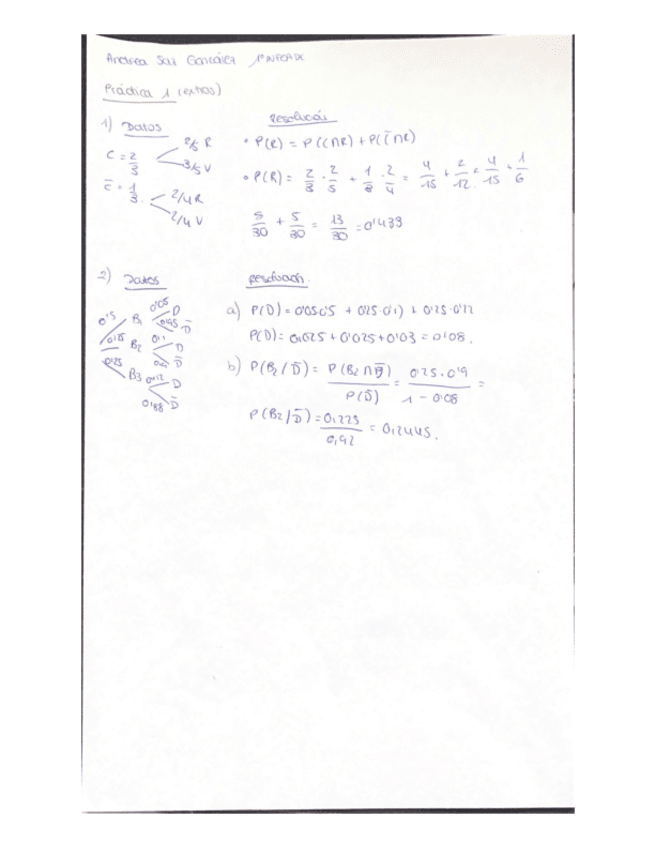 Andrea Saiz González 1º INFCADE
Práctica 1 (extras)
1) Datos
C = 2/3
2/5 R
3/5 V
C̄ = 1/3
2/4 R
2/4 V
Resolución
• P(R) = P(C∩R) + P(C̄∩R)
• P(R) = 2/3 · 2/5 + 1/3 · 2/4 = 4/15 + 2/12 = 4/15 + 1/6
8/30 + 5/30 = 13/30 = 0'433
2) Datos
0'5 B1 0'05 D
0'95 D̄
0'25 B2 0'1 D
0'9 D̄
0'25 B3 0'12 D
0'88 D̄
Resolución.
a) P(D) = 0'05·0'5 + 0'25·0'1) + 0'25·0'12
P(D) = 0,025 + 0'025 + 0'03 = 0'08.
b) P(B2/D̄) = P(B2∩D̄)/P(D̄) = 0'25·0'9/1-0'08 =
P(B2/D̄) = 0,225/0,92 = 0,2445.